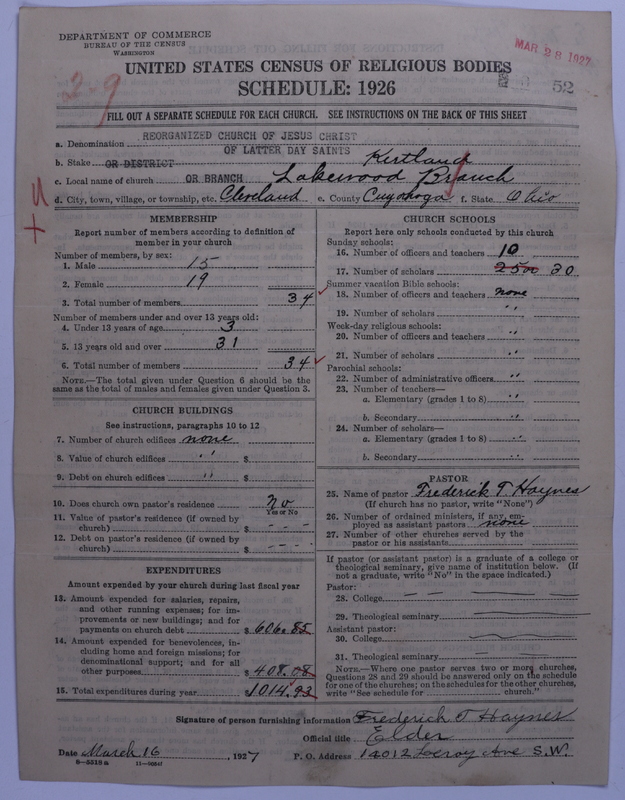 DEPARTMENT OF COMMERCE
BUREAU OF THE CENSUS
WASHINGTON
MAR 28 1927
UNITED STATES CENSUS OF RELIGIOUS BODIES
SCHEDULE: 1926
52
2-9
FILL OUT A SEPARATE SCHEDULE FOR EACH CHURCH. SEE INSTRUCTIONS ON THE BACK OF THIS SHEET
REORGANIZED CHURCH OF JESUS CHRIST
a. Denomination
OF LATTER DAY SAINTS
b. Stake OR DISTRICT Kirtland
c. Local name of church OR BRANCH Lakewood Branch
d. City, town, village, or township, etc. Cleveland e. County Cuyohoga f. State Ohio
MEMBERSHIP
Report number of members according to definition of
member in your church
Number of members, by sex:
1. Male 15
2. Female 19
3. Total number of members 34
Number of members under and over 13 years old:
4. Under 13 years of age 3
5. 13 years old and over 31
6. Total number of members 34
NOTE.—The total given under Question 6 should be the
same as the total of males and females given under Question 3.
CHURCH BUILDINGS
See instructions, paragraphs 10 to 12
7. Number of church edifices none
8. Value of church edifices " $
9. Debt on church edifices " $
10. Does church own pastor's residence No
Yes or No
11. Value of pastor's residence (if owned by
church) $ - - -
12. Debt on pastor's residence (if owned by
church) $ - - -
EXPENDITURES
Amount expended by your church during last fiscal year
13. Amount expended for salaries, repairs,
and other running expenses; for im-
provements or new buildings; and for
payments on church debt $ 606.85
14. Amount expended for benevolences, in-
cluding home and foreign missions; for
denominational support; and for all
other purposes $ 408.08
15. Total expenditures during year $ 1014.93
CHURCH SCHOOLS
Report here only schools conducted by this church
Sunday schools:
16. Number of officers and teachers 10
17. Number of scholars 30
Summer vacation Bible schools:
18. Number of officers and teachers none
19. Number of scholars "
Week-day religious schools:
20. Number of officers and teachers "
21. Number of scholars "
Parochial schools:
22. Number of administrative officers "
23. Number of teachers—
a. Elementary (grades 1 to 8) "
b. Secondary "
24. Number of scholars—
a. Elementary (grades 1 to 8) "
b. Secondary "
PASTOR
25. Name of pastor Frederick T Haynes
(If church has no pastor, write "None")
26. Number of ordained ministers, if any, em-
ployed as assistant pastors none
27. Number of other churches served by the
pastor or his assistants
If pastor (or assistant pastor) is a graduate of a college or
theological seminary, give name of institution below. (If
not a graduate, write "No" in the space indicated.)
Pastor:
28. College
29. Theological seminary
Assistant pastor:
30. College
31. Theological seminary
NOTE.—Where one pastor serves two or more churches,
Questions 28 and 29 should be answered only on the schedule
for one of the churches; on the schedules for the other churches,
write "See schedule for church."
Signature of person furnishing information Frederick T Haynes
Official title Elder
Date March 16, 1927 P. O. Address 14012 Leroy Ave S.W.
8—5518 a